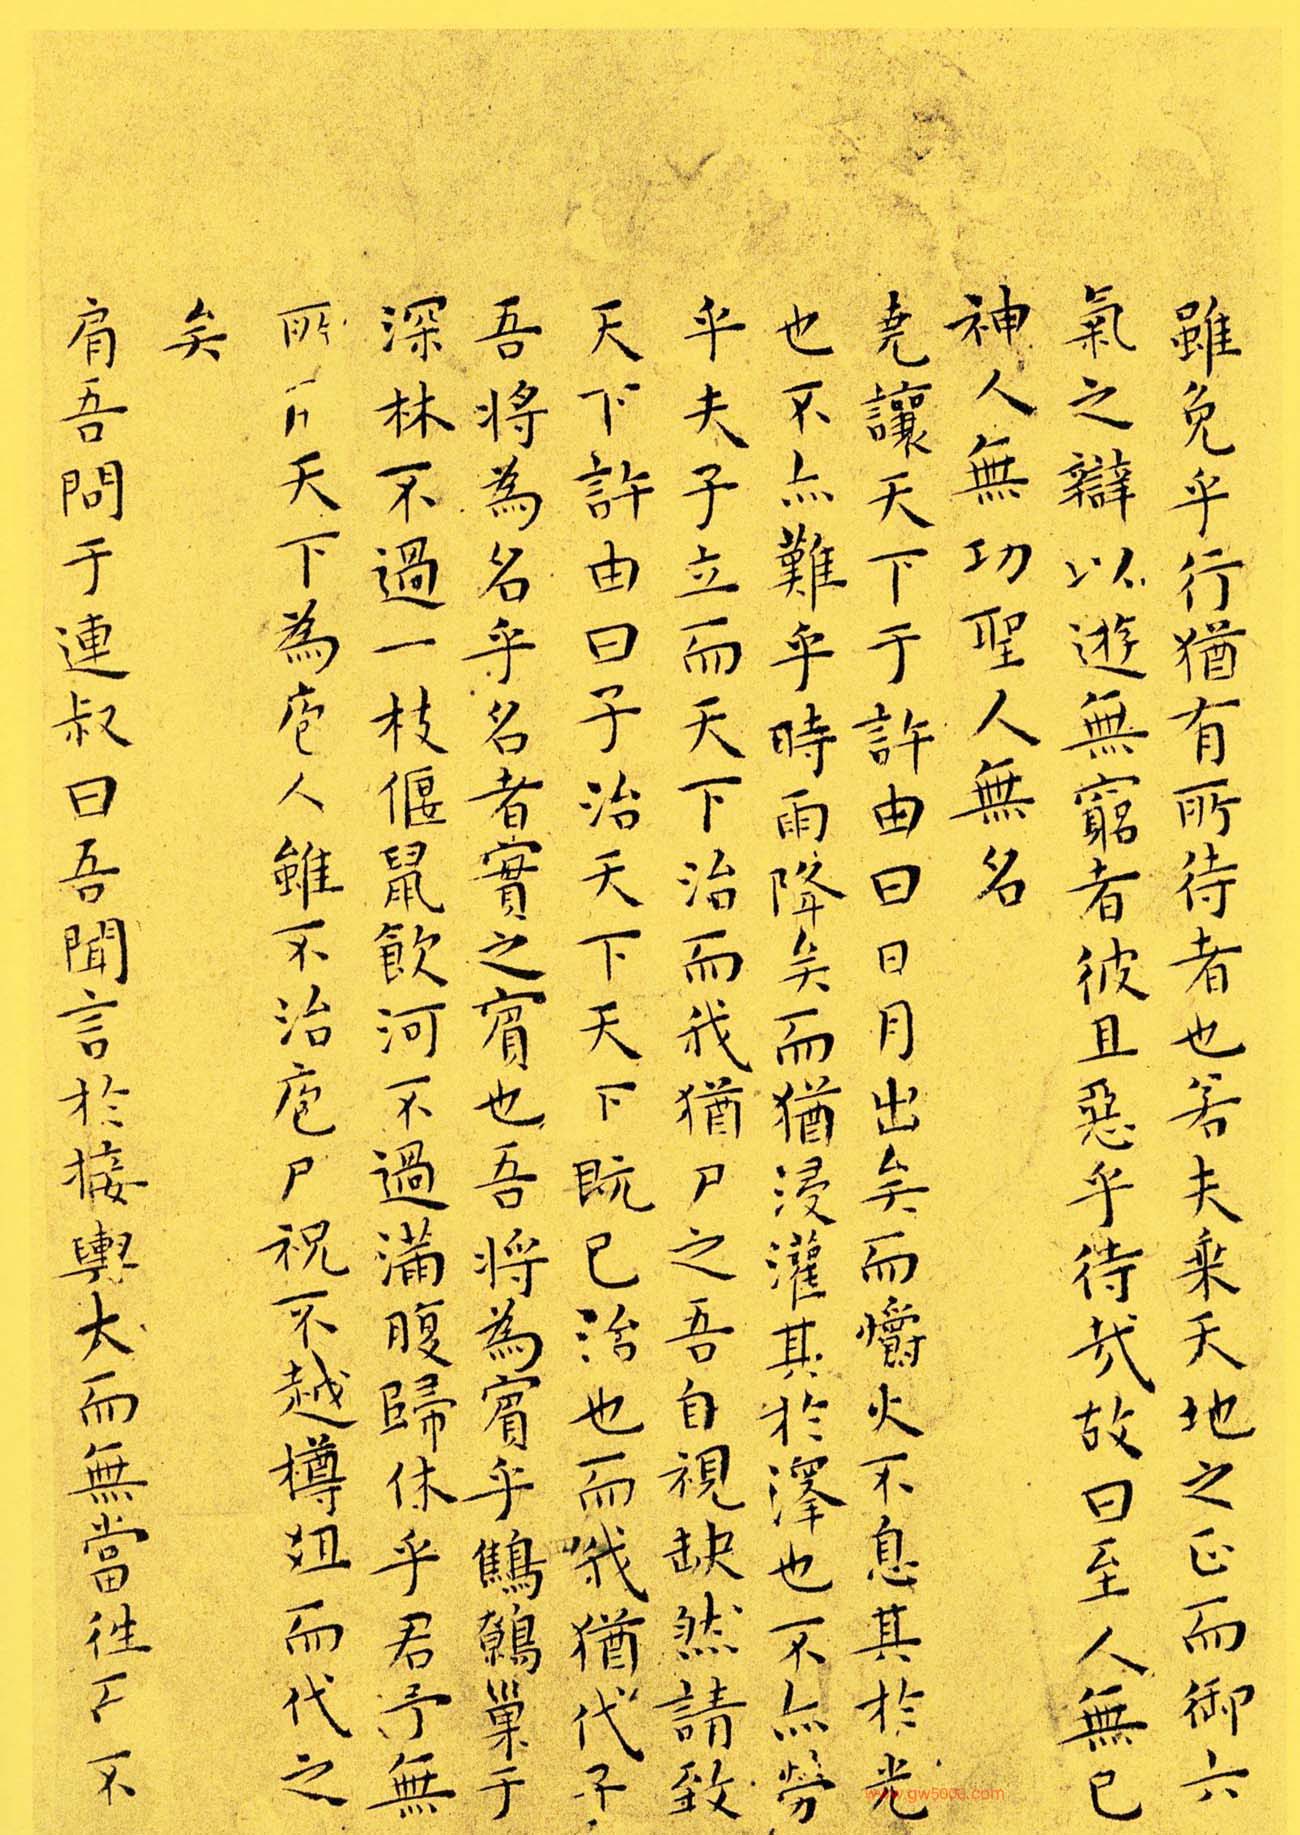 雖免乎行猶有所待者也若夫乘天地之正而御六
氣之辯以遊無窮者彼且惡乎待哉故曰至人無己
神人無功聖人無名
堯讓天下于許由曰日月出矣而爝火不息其於光
也不亦難乎時雨降矣而猶浸灌其於澤也不亦勞
乎夫子立而天下治而我猶尸之吾自視缺然請致
天下許由曰子治天下天下既已治也而我猶代子
吾將為名乎名者實之賓也吾將為賓乎鷦鷯巢于
深林不過一枝偃鼠飲河不過滿腹歸休乎君予無
所天下為庖人雖不治庖尸祝不越樽俎而代之
矣
肩吾問于連叔曰吾聞言於接輿大而無當往不
www.gw5000.com